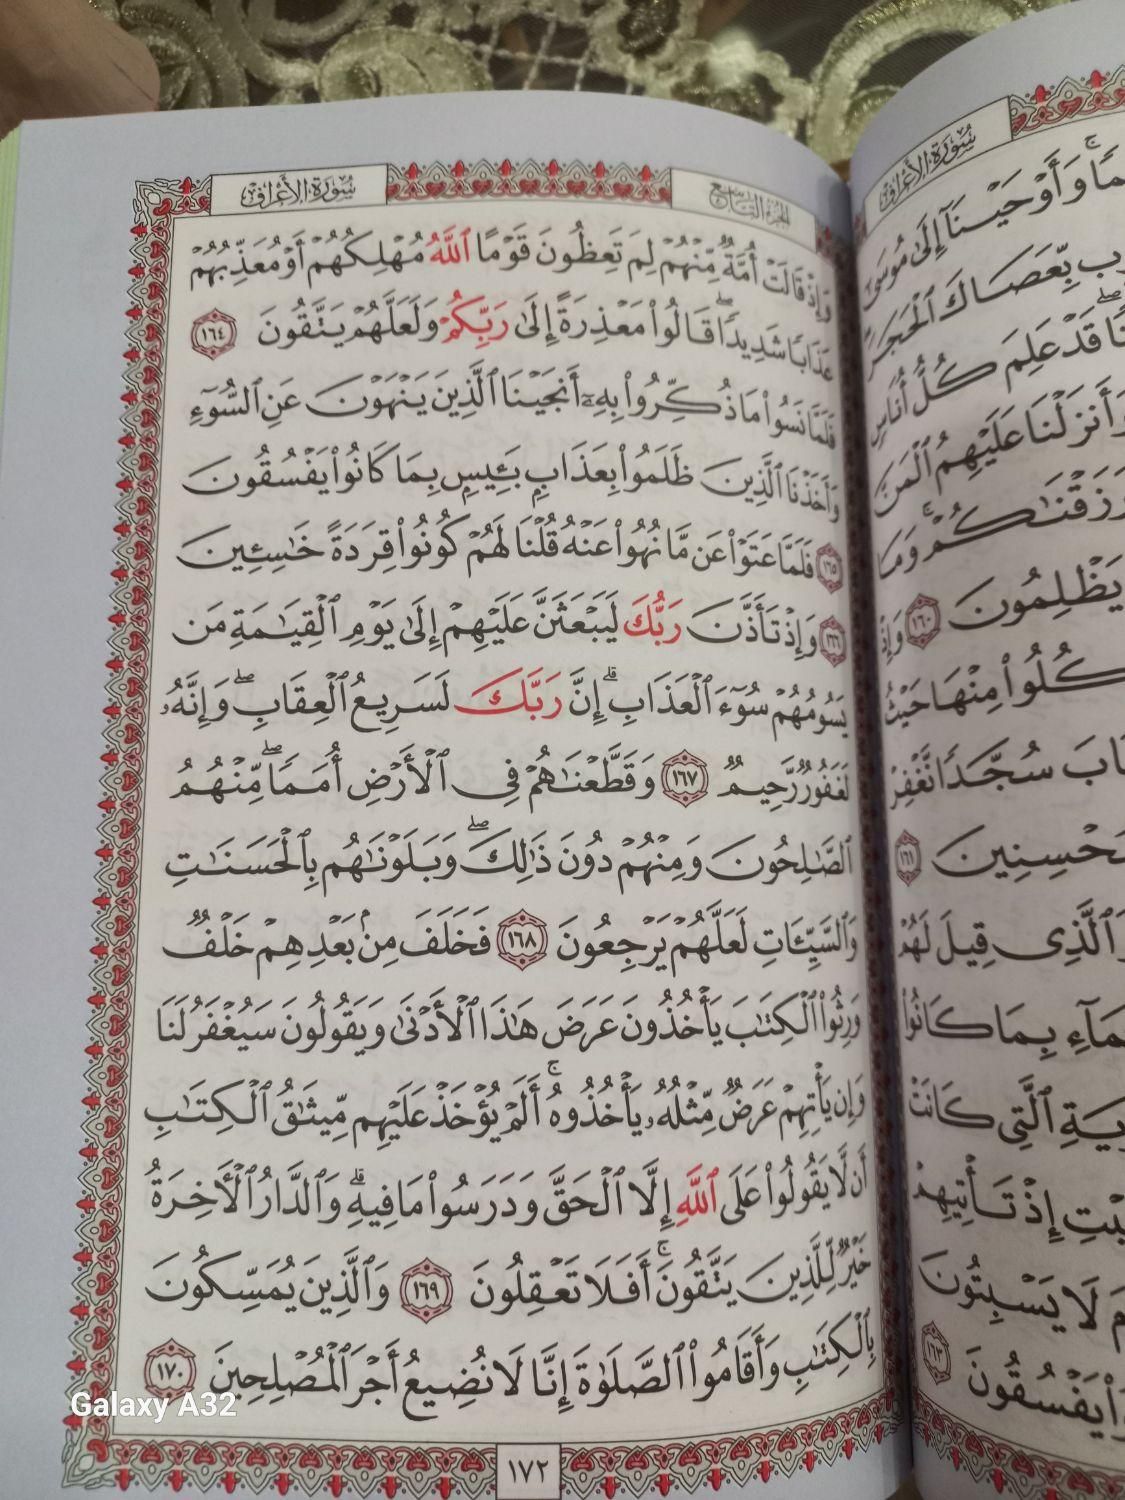 سُورَةُ الأَعْرَافِ
الجُزْءُ التَّاسِعُ
وَإِذْ قَالَتْ أُمَّةٌ مِّنْهُمْ لِمَ تَعِظُونَ قَوْمًا ٱللَّهُ مُهْلِكُهُمْ أَوْ مُعَذِّبُهُمْ
عَذَابًا شَدِيدًا ۖ قَالُوا۟ مَعْذِرَةً إِلَىٰ رَبِّكُمْ وَلَعَلَّهُمْ يَتَّقُونَ ١٦٤
فَلَمَّا نَسُوا۟ مَا ذُكِّرُوا۟ بِهِۦٓ أَنجَيْنَا ٱلَّذِينَ يَنْهَوْنَ عَنِ ٱلسُّوٓءِ
وَأَخَذْنَا ٱلَّذِينَ ظَلَمُوا۟ بِعَذَابٍۭ بَـِٔيسٍۭ بِمَا كَانُوا۟ يَفْسُقُونَ
١٦٥ فَلَمَّا عَتَوْا۟ عَن مَّا نُهُوا۟ عَنْهُ قُلْنَا لَهُمْ كُونُوا۟ قِرَدَةً خَـٰسِـِٔينَ
١٦٦ وَإِذْ تَأَذَّنَ رَبُّكَ لَيَبْعَثَنَّ عَلَيْهِمْ إِلَىٰ يَوْمِ ٱلْقِيَـٰمَةِ مَن
يَسُومُهُمْ سُوٓءَ ٱلْعَذَابِ ۗ إِنَّ رَبَّكَ لَسَرِيعُ ٱلْعِقَابِ ۖ وَإِنَّهُۥ
لَغَفُورٌ رَّحِيمٌ ١٦٧ وَقَطَّعْنَـٰهُمْ فِى ٱلْأَرْضِ أُمَمًا ۖ مِّنْهُمُ
ٱلصَّـٰلِحُونَ وَمِنْهُمْ دُونَ ذَٰلِكَ ۖ وَبَلَوْنَـٰهُم بِٱلْحَسَنَـٰتِ
وَٱلسَّيِّـَٔاتِ لَعَلَّهُمْ يَرْجِعُونَ ١٦٨ فَخَلَفَ مِنۢ بَعْدِهِمْ خَلْفٌ
وَرِثُوا۟ ٱلْكِتَـٰبَ يَأْخُذُونَ عَرَضَ هَـٰذَا ٱلْأَدْنَىٰ وَيَقُولُونَ سَيُغْفَرُ لَنَا
وَإِن يَأْتِهِمْ عَرَضٌ مِّثْلُهُۥ يَأْخُذُوهُ ۚ أَلَمْ يُؤْخَذْ عَلَيْهِم مِّيثَـٰقُ ٱلْكِتَـٰبِ
أَن لَّا يَقُولُوا۟ عَلَى ٱللَّهِ إِلَّا ٱلْحَقَّ وَدَرَسُوا۟ مَا فِيهِ ۗ وَٱلدَّارُ ٱلْـَٔاخِرَةُ
خَيْرٌ لِّلَّذِينَ يَتَّقُونَ ۚ أَفَلَا تَعْقِلُونَ ١٦٩ وَٱلَّذِينَ يُمَسِّكُونَ
بِٱلْكِتَـٰبِ وَأَقَامُوا۟ ٱلصَّلَوٰةَ إِنَّا لَا نُضِيعُ أَجْرَ ٱلْمُصْلِحِينَ ١٧٠
١٧٢
Galaxy A32
سُورَةُ الأَعْرَافِ
وَأَوْحَيْنَآ إِلَىٰ مُوسَىٰٓ
بِّعَصَاكَ ٱلْحَجَرَ
قَدْ عَلِمَ كُلُّ أُنَاسٍ
وَأَنزَلْنَا عَلَيْهِمُ ٱلْمَنَّ
رَزَقْنَـٰكُمْ ۚ وَمَا
يَظْلِمُونَ ١٦٠ وَإِذْ
كُلُوا۟ مِنْهَا حَيْثُ
سُجَّدًا نَّغْفِرْ
١٦١
ٱلَّذِى قِيلَ لَهُمْ
بِمَا كَانُوا۟
ٱلَّتِى كَانَتْ
إِذْ تَأْتِيهِمْ
لَا يَسْبِتُونَ
يَفْسُقُونَ ١٦٣